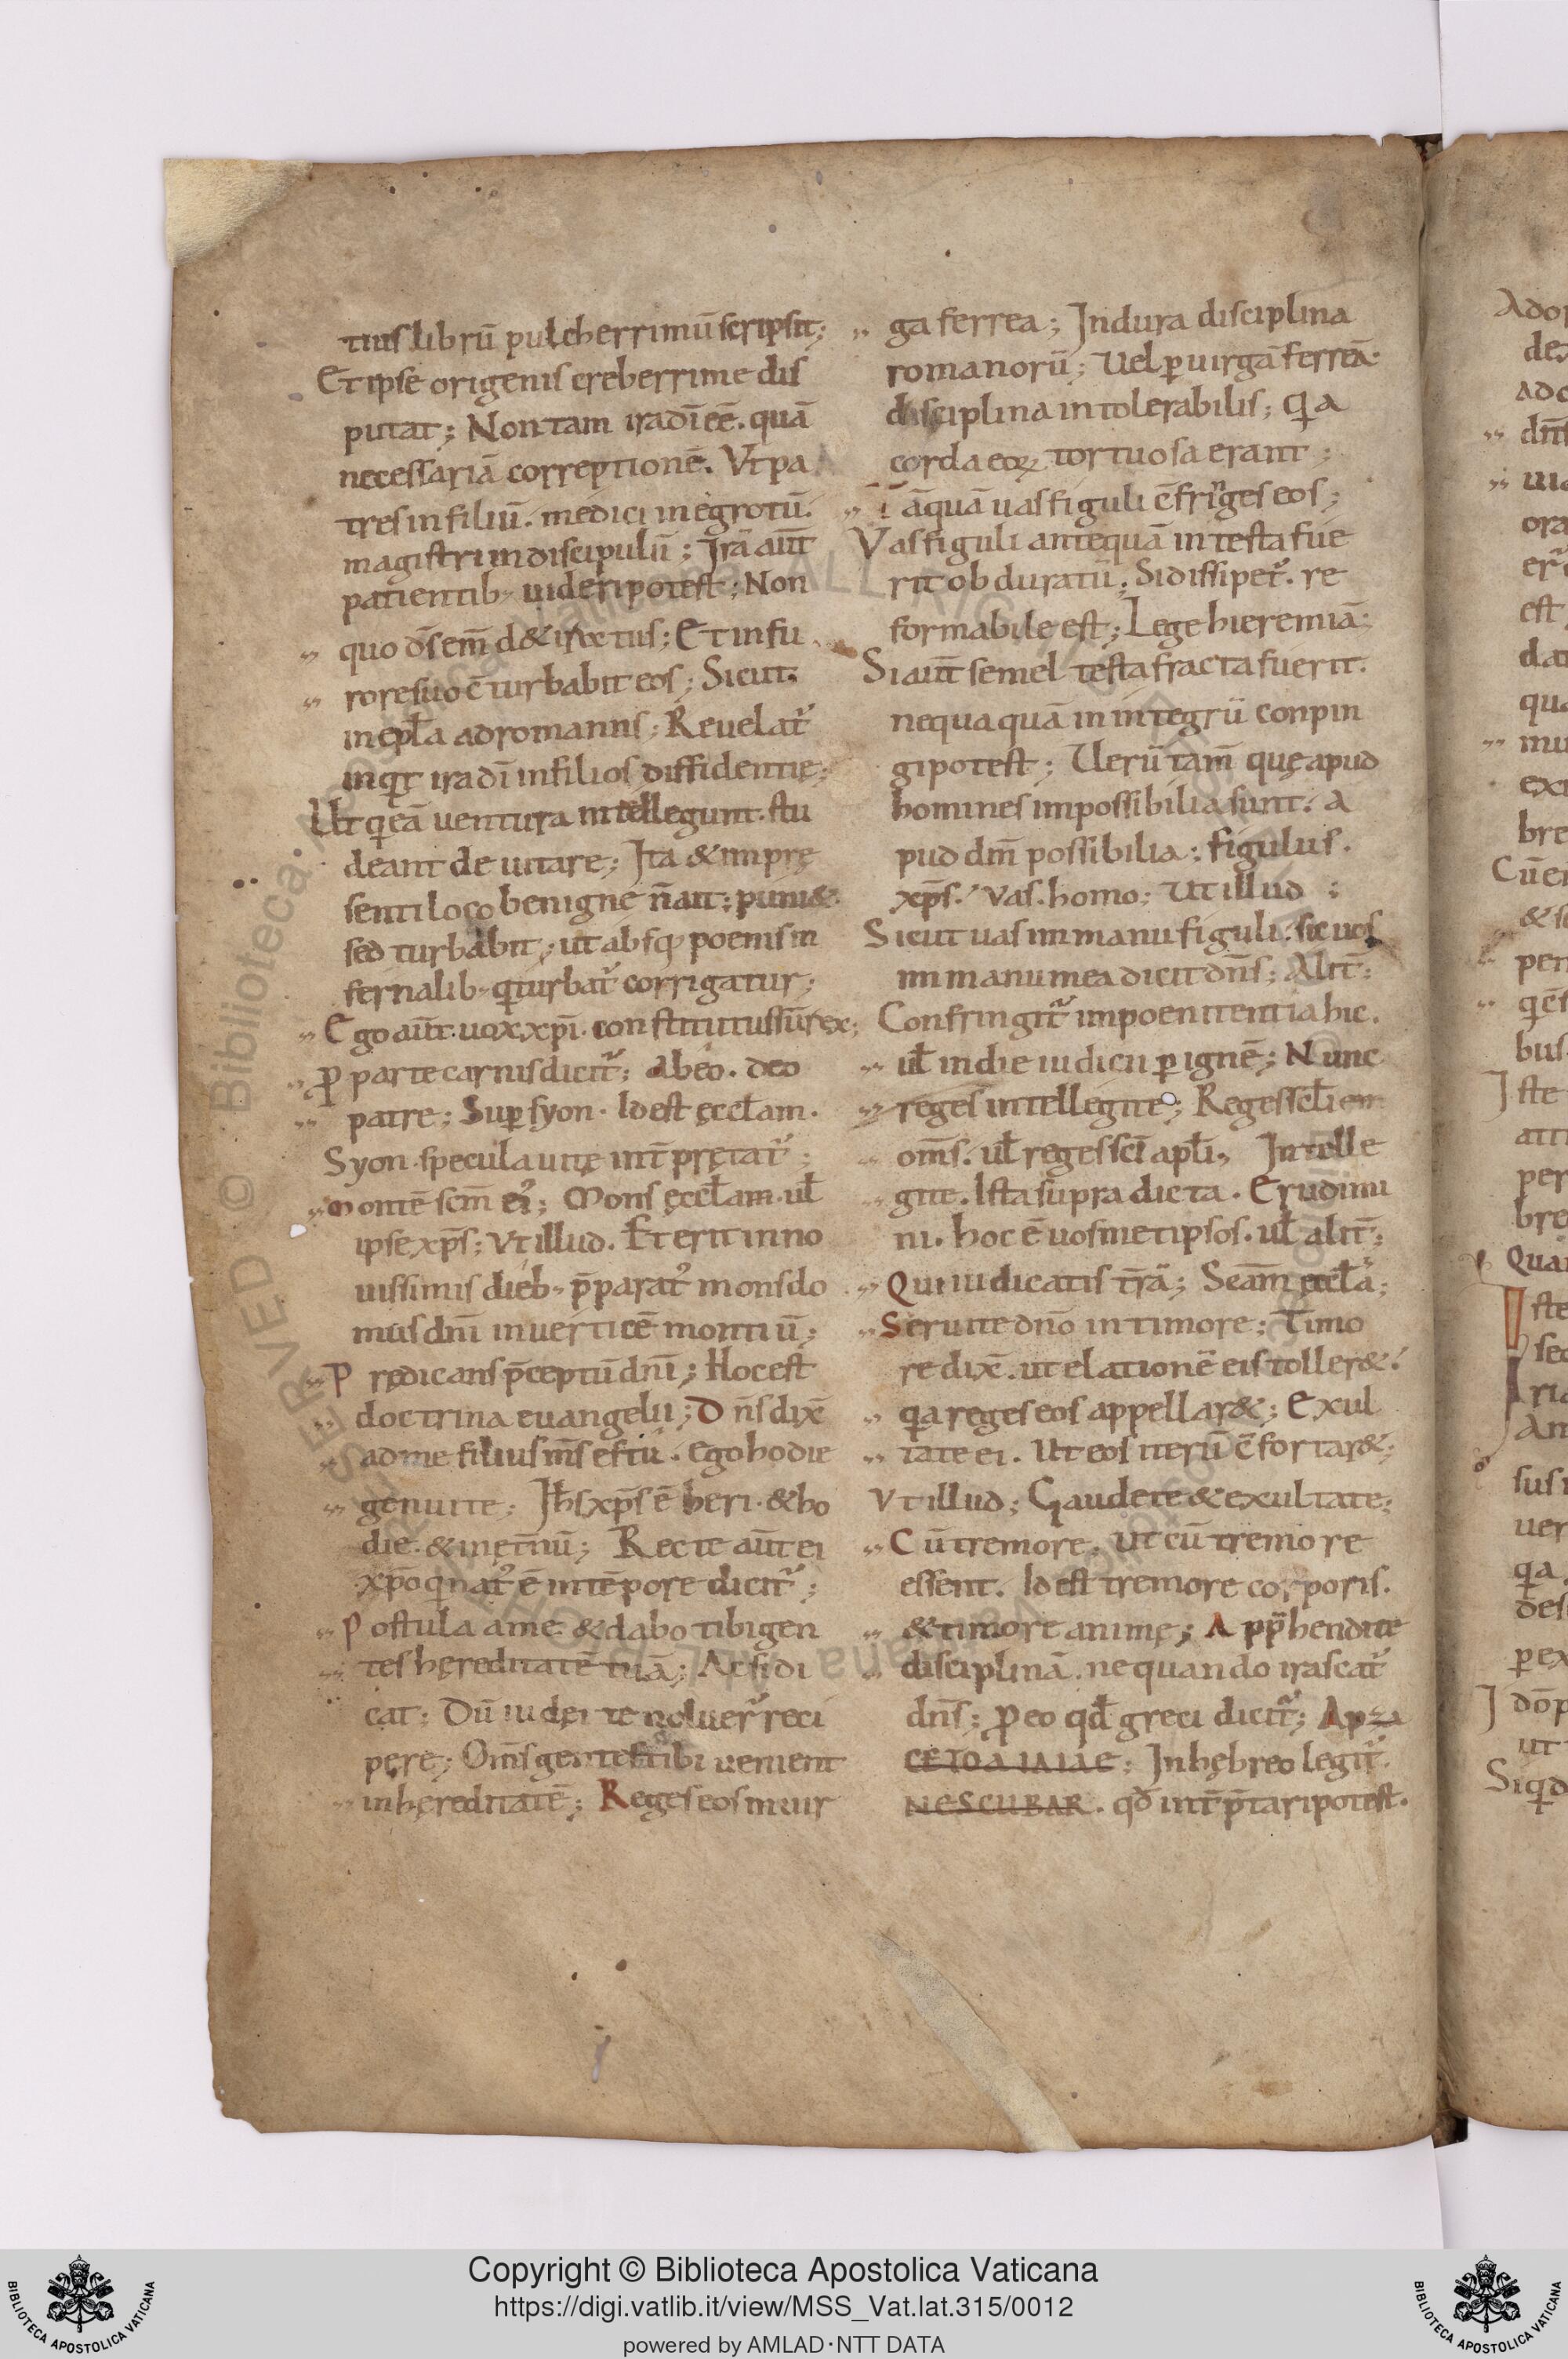 tius librū pulcherrimū scripsit;
Et ipse origenis creberrime dis
putat; Non tam ira dī eē. quā
necessariā correptionē. Vt pa
tres in filiū. medici in egrotū.
magistri in discipulū; Irā aūt
patientib; uideri potest; Non
quo d̄s em̄ d& iratus; Et in fu
rore suo c̄turbabit eos; Sicut
in epl̄a ad romanus; Reuelat᷑
inqt ira dī in filios diffidentię;
Ut q eā uentura intellegunt. stu
deant deuitare; Ita & in prę
senti loco benigne n̄ ait; puni&.
sed turbabit; ut absq; poenis in
fernalib; q turbat᷑ corrigatur;
Ego aūt. uox xpī. constitutus sū rex;
ꝑ parte carnis dicit᷑; ab eo. deo
patre; Sup syon. Id est ęccl̄am.
Syon. specula uitę int̄prętat᷑;
montē scm̄ ei᷑; Mons ęccl̄am. ul̄
ipse xp̄s; Vt illud. Et erit in no
uissimis dieb; p̄parat᷑ mons do
mus dnī in uerticē montiū;
Prędicans p̄ceptū dnī; Hoc est
doctrina euangelii; Dn̄s dix̄
ad me filius m̄s es tū. ego hodie
genui te; Ih̄s xp̄s ē heri. & ho
die. & in ęt̄nū; Recte aūt ei
xp̄o q nat᷑ ē in tēpore dicit᷑;
Postula a me & dabo tibi gen
tes hęreditatē tuā; Ac si di
cat; Dū iudęi te noluer᷑ reci
pere; Om̄s gentes tibi uenient
in hęreditatē; Reges eos in uir
ga ferrea; In dura disciplina
romanorū; Uel p uirgā ferreā.
disciplina intolerabilis; qa
corda eoꝝ tortuosa erant;
Tāquā uas figuli c̄fringes eos;
Vas figuli antequā in testa fue
rit obduratū; Si dissipet᷑. re
formabile est; Lege hieremiā:
Si aūt semel testa fracta fuerit.
nequaquā in integrū conpin
gi potest; Uerū tam̄ quę apud
homines impossibilia sunt. a
pud dm̄ possibilia; figulus.
xp̄s. vas. homo; Ut illud;
Sicut uas in manu figuli. sic uos
in manu mea dicit dn̄s; Alit̄;
Confringit᷑ in poenitentia hic.
ul̄ in die iudicii p ignē; Nunc
reges intellegite; Reges
om̄s. ul̄ reges scī apl̄i. Intelle
gite. Ista supra dicta. Erudimi
ni. hoc ē uosmetipsos. ul̄ alit̄;
Qui iudicatis t̄rā; Scām ęccl̄ā;
Seruite dn̄o in timore; Timo
re dix̄. ut elationē eis toller&.
qa reges eos appellar&; Exul
tate ei. Ut eos iterū c̄fortar&;
Vt illud; Gaudete & exultate;
Cū tremore. Ut cū tremore
essent. Id est tremore corporis.
& timore animę; Apphendite
disciplinā. ne quando irascat᷑
dn̄s; Pro eo qd̄ greci dicit᷑;
In hębreo legit᷑.
NESCUBAR. qd̄ int̄p̄tari potest.
Copyright © Biblioteca Apostolica Vaticana
https://digi.vatlib.it/view/MSS_Vat.lat.315/0012
powered by AMLAD·NTT DATA